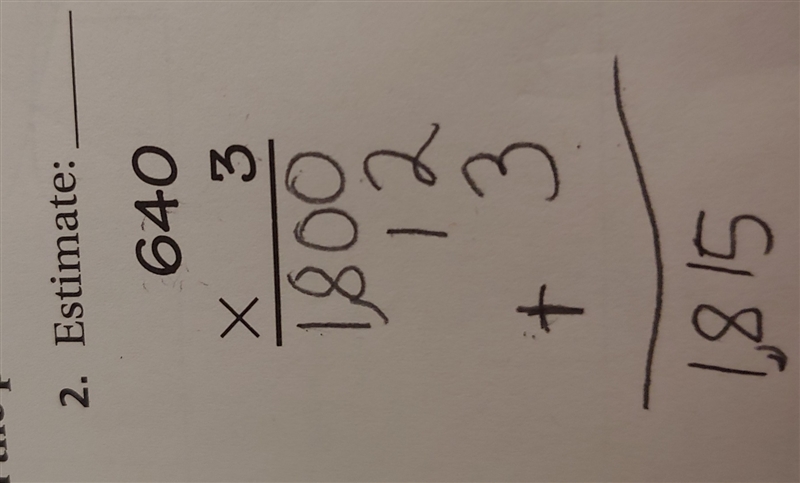 2. Estimate: ____
640
× 3
1,800
12
+ 3
1,815